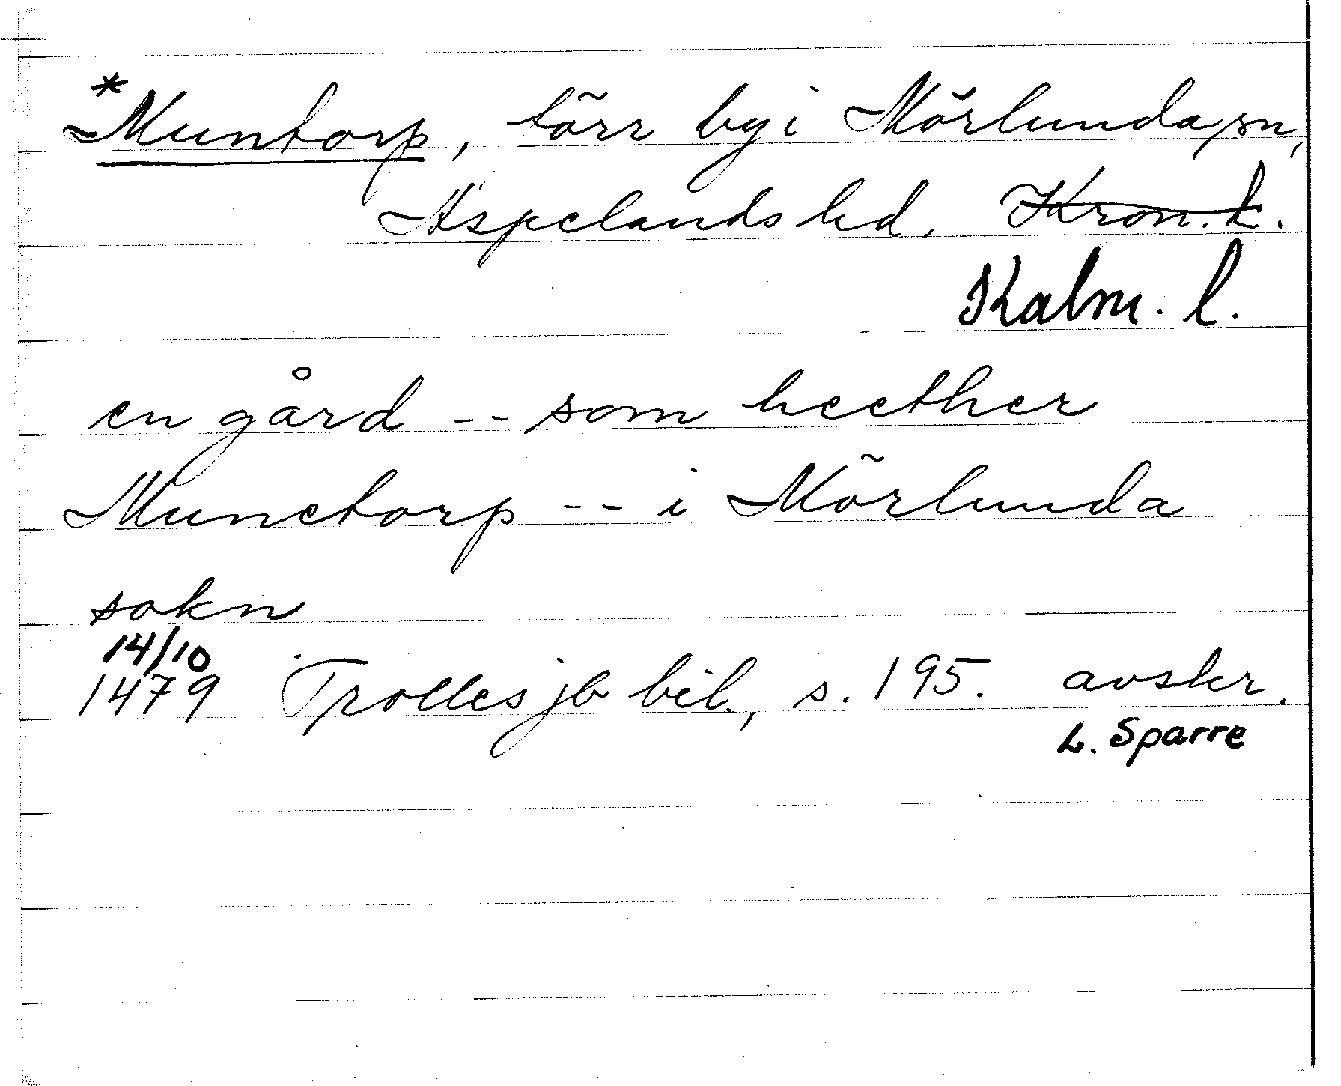 *Muntorp, förr by i Mörlunda sn,
Aspelands hd. Kron. l.
Kalm. l.
en gård -- som heether
Munetorp -- i Mörlunda
sokn
14/10
1479 Trolles jb bil., s. 195. avskr.
L. Sparre